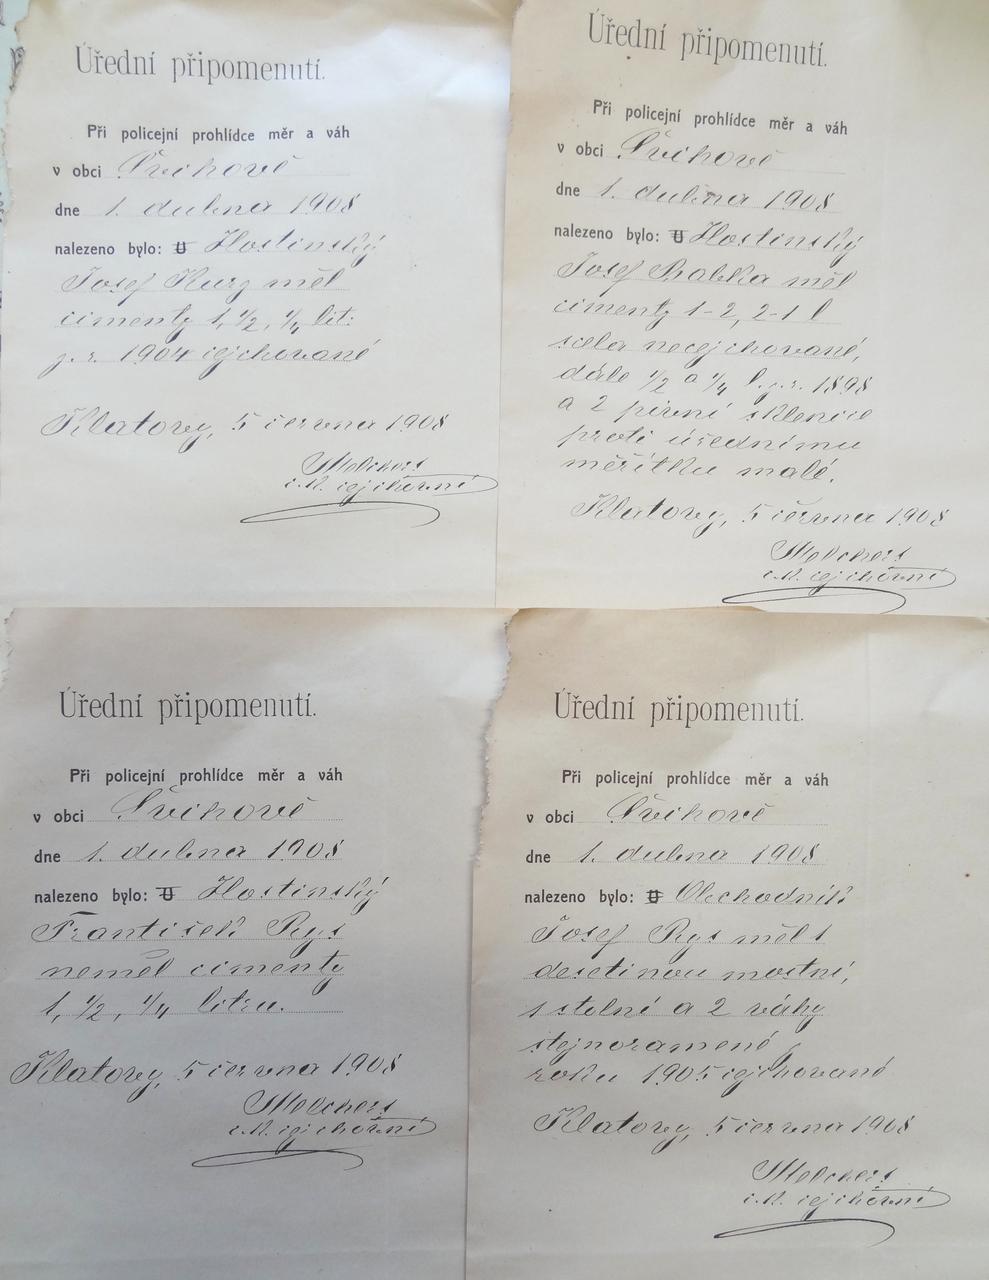 Úřední připomenutí.
Při policejní prohlídce měr a váh
v obci Švihově
dne 1. dubna 1908
nalezeno bylo: U Hostinský
Josef Kurz měl
cimenty 1, 1/2, 1/4 lit:
z. r. 1904 cejchované
Klatovy, 5 června 1908
Melchers
c.k. cejchovní
Úřední připomenutí.
Při policejní prohlídce měr a váh
v obci Švihově
dne 1. dubna 1908
nalezeno bylo: U Hostinský
Josef Babka měl
cimenty 1-2, 2-1 l
zcela necejchované,
dále 1/2 a 1/4 l. z. r. 1898
a 2 pivní sklenice
proti úřednímu
měřítku malé.
Klatovy, 5 června 1908
Melchers
c.k. cejchovní
Úřední připomenutí.
Při policejní prohlídce měr a váh
v obci Švihově
dne 1. dubna 1908
nalezeno bylo: U Hostinský
František Rys
neměl cimenty
1, 1/2, 1/4 litru.
Klatovy, 5 června 1908
Melchers
c.k. cejchovní
Úřední připomenutí.
Při policejní prohlídce měr a váh
v obci Švihově
dne 1. dubna 1908
nalezeno bylo: U Obchodník
Josef Rys měl 1
desetinou mostní,
1 stolní a 2 váhy
stejnoramené
roku 1905 cejchované
Klatovy, 5 června 1908
Melchers
c.k. cejchovní